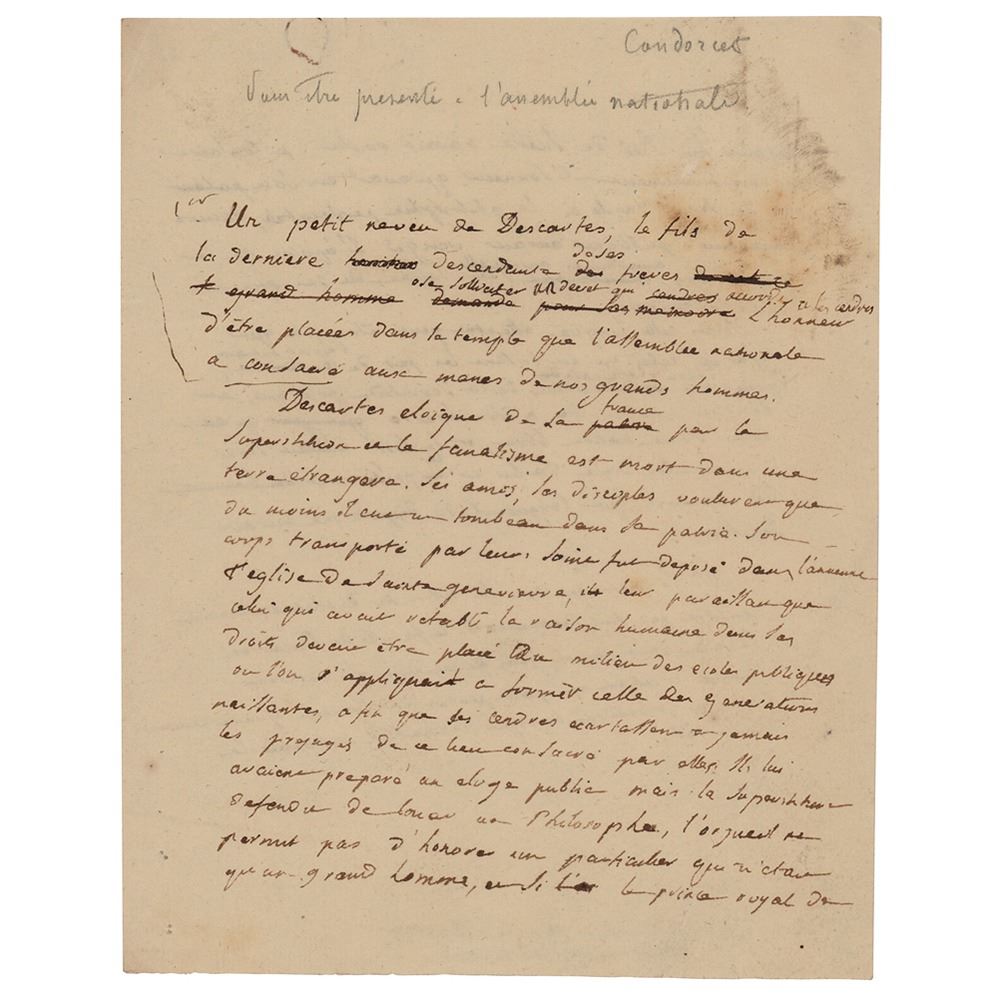 Condorcet
Pour être presenté a l'assemblée nationale.
Un petit neveu de Descartes, le fils de
la derniere descendante de ses freres
ose solliciter un decret qui accorde a les cendres
grand homme demande pour sa memoire l'honneur
d'être placées dans le temple que l'assemblée nationale
a consacré aux manes de nos grands hommes.
Descartes eloigné de la france par la
superstition et le fanatisme est mort dans une
terre étrangere. Ses amis, ses disciples voulurent que
du moins il eut un tombeau dans sa patrie. Son
corps transporté par leurs soins fut deposé dans l'ancienne
eglise de Sainte genevieve, il leur paraissait que
celui qui avait retabli la raison humaine dans ses
droits devait être placé au milieu des ecoles publiques
ou l'on s'appliquait a former celle des generations
naissantes, afin que ses cendres ecartassent a jamais
les prejugés de ce lieu consacré par elles. Ils lui
avaient preparé un eloge public mais la superstition
defendit de louer un Philosophe, l'orgueil ne
permit pas d'honorer un particulier qui n'etait
qu'un grand homme, et si le prince royal de